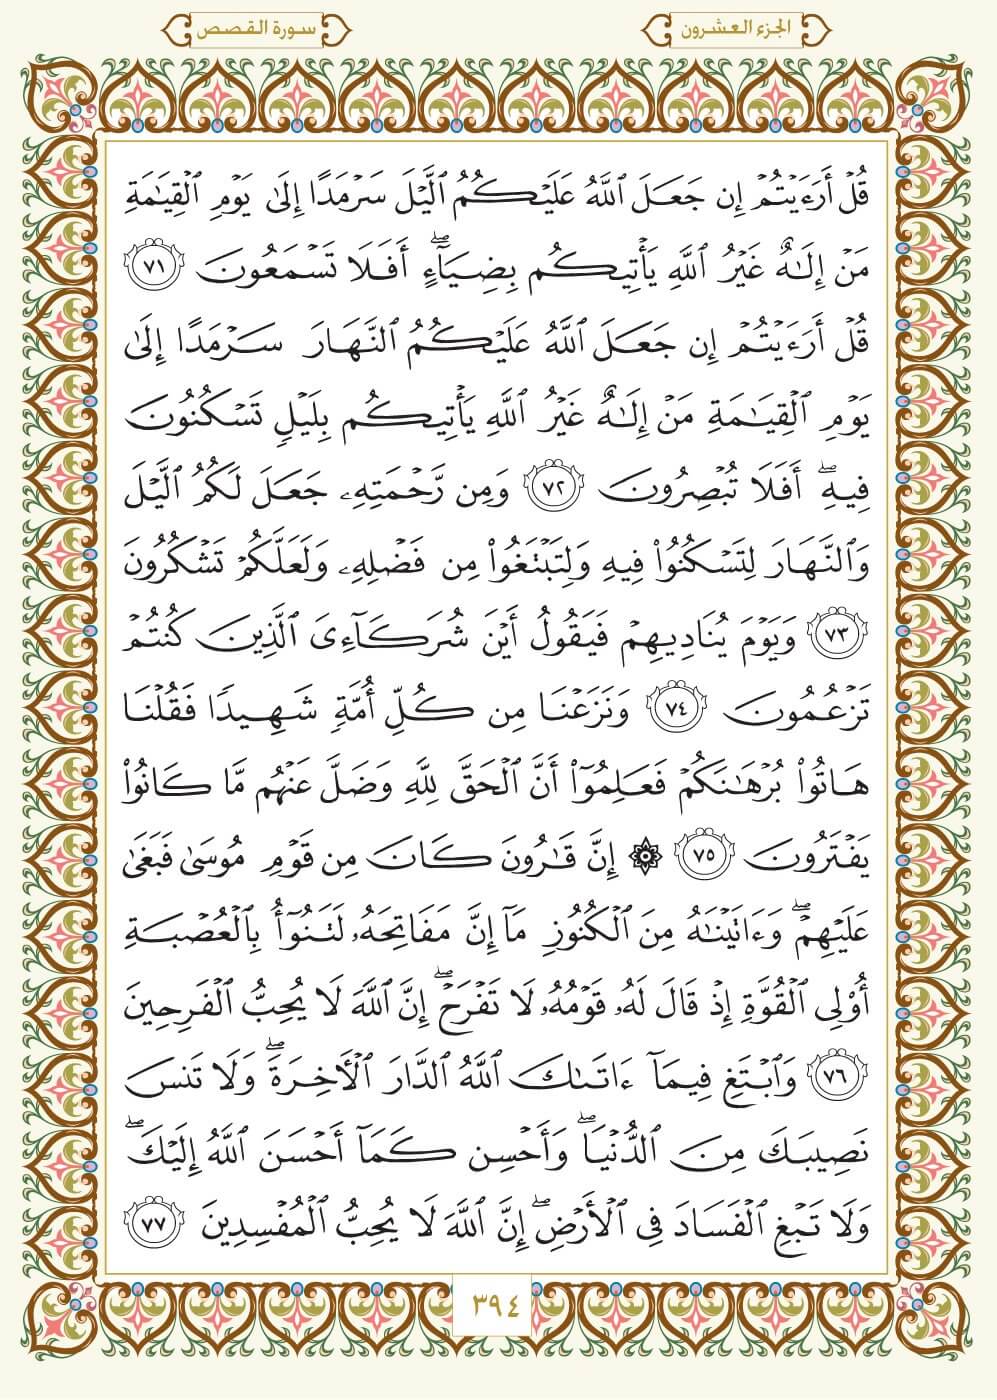 الجزء العشرون
سورة القصص
قُلْ أَرَءَيْتُمْ إِن جَعَلَ ٱللَّهُ عَلَيْكُمُ ٱلَّيْلَ سَرْمَدًا إِلَىٰ يَوْمِ ٱلْقِيَٰمَةِ
مَنْ إِلَٰهٌ غَيْرُ ٱللَّهِ يَأْتِيكُم بِضِيَآءٍ ۖ أَفَلَا تَسْمَعُونَ ٧١
قُلْ أَرَءَيْتُمْ إِن جَعَلَ ٱللَّهُ عَلَيْكُمُ ٱلنَّهَارَ سَرْمَدًا إِلَىٰ
يَوْمِ ٱلْقِيَٰمَةِ مَنْ إِلَٰهٌ غَيْرُ ٱللَّهِ يَأْتِيكُم بِلَيْلٍ تَسْكُنُونَ
فِيهِ ۖ أَفَلَا تُبْصِرُونَ ٧٢ وَمِن رَّحْمَتِهِۦ جَعَلَ لَكُمُ ٱلَّيْلَ
وَٱلنَّهَارَ لِتَسْكُنُوا۟ فِيهِ وَلِتَبْتَغُوا۟ مِن فَضْلِهِۦ وَلَعَلَّكُمْ تَشْكُرُونَ
٧٣ وَيَوْمَ يُنَادِيهِمْ فَيَقُولُ أَيْنَ شُرَكَآءِىَ ٱلَّذِينَ كُنتُمْ
تَزْعُمُونَ ٧٤ وَنَزَعْنَا مِن كُلِّ أُمَّةٍ شَهِيدًا فَقُلْنَا
هَاتُوا۟ بُرْهَٰنَكُمْ فَعَلِمُوٓا۟ أَنَّ ٱلْحَقَّ لِلَّهِ وَضَلَّ عَنْهُم مَّا كَانُوا۟
يَفْتَرُونَ ٧٥ ۞ إِنَّ قَٰرُونَ كَانَ مِن قَوْمِ مُوسَىٰ فَبَغَىٰ
عَلَيْهِمْ ۖ وَءَاتَيْنَٰهُ مِنَ ٱلْكُنُوزِ مَآ إِنَّ مَفَاتِحَهُۥ لَتَنُوٓأُ بِٱلْعُصْبَةِ
أُو۟لِى ٱلْقُوَّةِ إِذْ قَالَ لَهُۥ قَوْمُهُۥ لَا تَفْرَحْ ۖ إِنَّ ٱللَّهَ لَا يُحِبُّ ٱلْفَرِحِينَ
٧٦ وَٱبْتَغِ فِيمَآ ءَاتَىٰكَ ٱللَّهُ ٱلدَّارَ ٱلْءَاخِرَةَ ۖ وَلَا تَنسَ
نَصِيبَكَ مِنَ ٱلدُّنْيَا ۖ وَأَحْسِن كَمَآ أَحْسَنَ ٱللَّهُ إِلَيْكَ ۖ
وَلَا تَبْغِ ٱلْفَسَادَ فِى ٱلْأَرْضِ ۖ إِنَّ ٱللَّهَ لَا يُحِبُّ ٱلْمُفْسِدِينَ ٧٧
٣٩٤